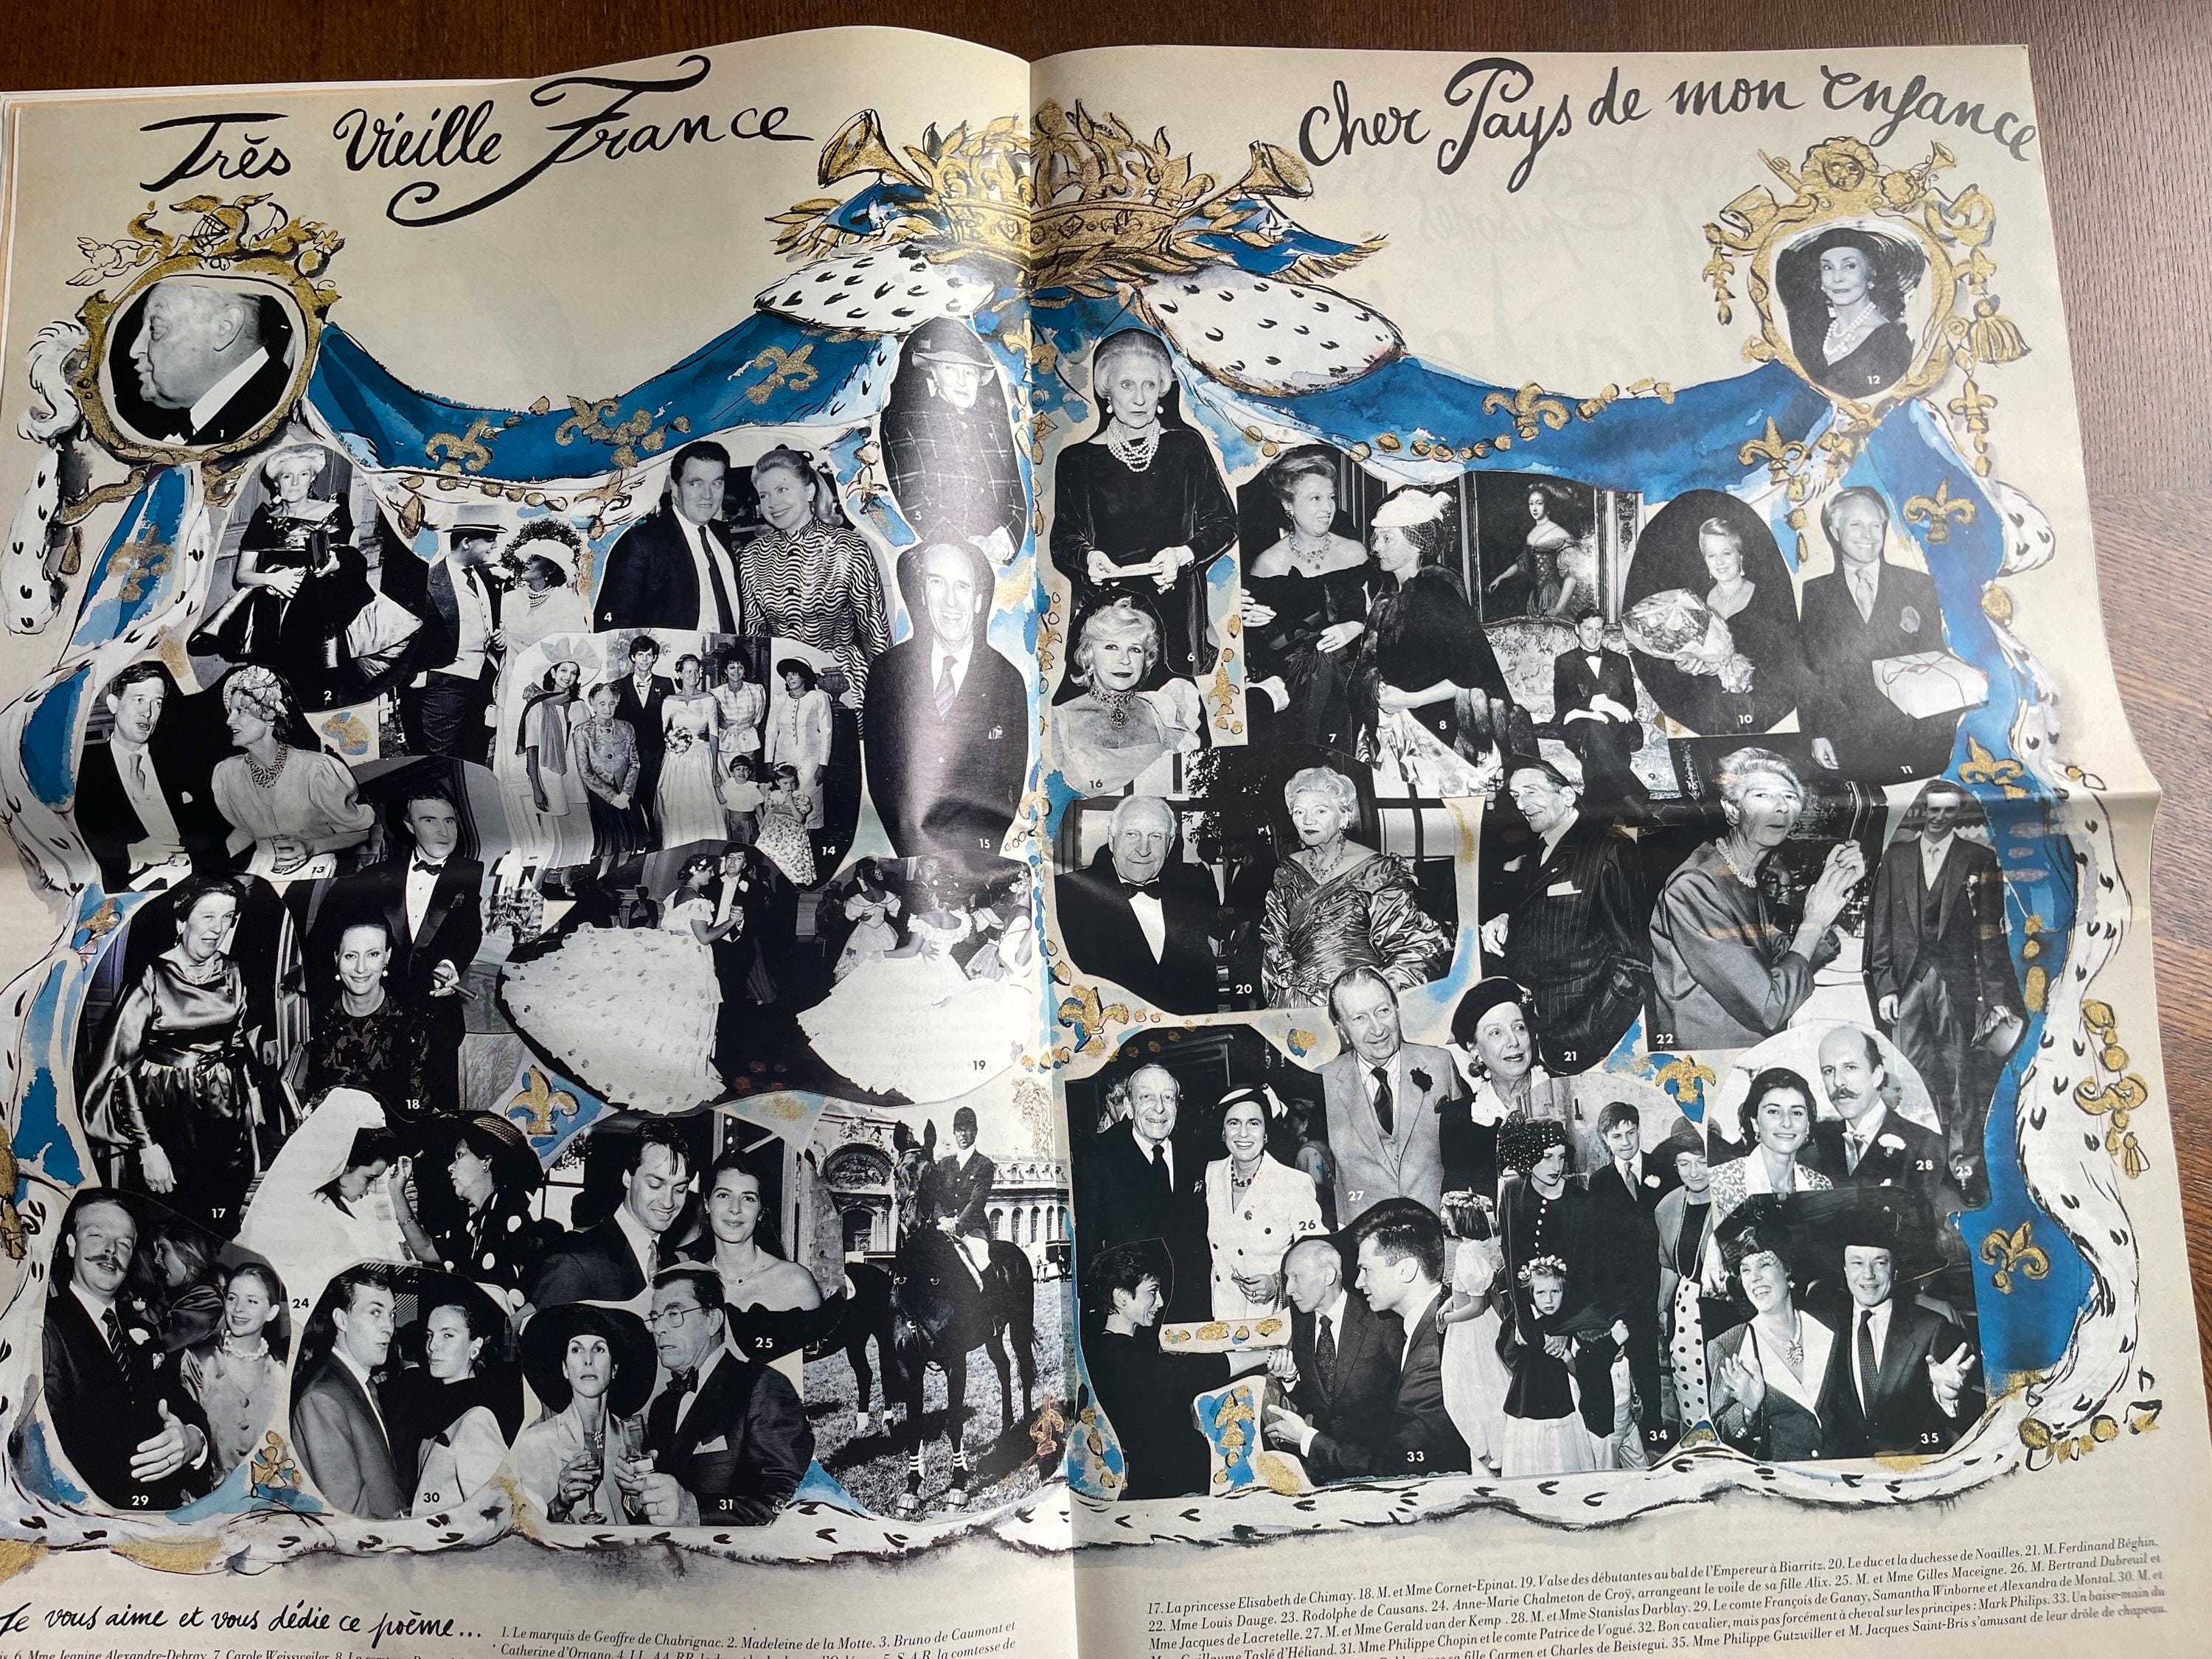 Très Vieille France
cher Pays de mon enfance
1
2
3
4
5
6
7
8
9
10
11
12
13
14
15
16
17
18
19
20
21
22
23
24
25
26
27
28
29
30
31
32
33
34
35
Je vous aime et vous dédie ce poème...
1. Le marquis de Geoffre de Chabrignac. 2. Madeleine de la Motte. 3. Bruno de Caumont et
Catherine d'Ornano. 4. LL. AA. RR. le duc et la duchesse d'Orléans. 5. S.A.R. la comtesse de
6. Mme Jeanine Alexandre-Debray. 7. Carole Weissweiler. 8. La comtesse
17. La princesse Elisabeth de Chimay. 18. M. et Mme Cornet-Epinat. 19. Valse des débutantes au bal de l'Empereur à Biarritz. 20. Le duc et la duchesse de Noailles. 21. M. Ferdinand Béghin.
22. Mme Louis Dauge. 23. Rodolphe de Causans. 24. Anne-Marie Chalmeton de Croÿ, arrangeant le voile de sa fille Alix. 25. M. et Mme Gilles Maceigne. 26. M. Bertrand Dubreuil et
Mme Jacques de Lacretelle. 27. M. et Mme Gerald van der Kemp. 28. M. et Mme Stanislas Darblay. 29. Le comte François de Ganay, Samantha Winborne et Alexandra de Montal. 30. M. et
Mme Guillaume Taslé d'Héliand. 31. Mme Philippe Chopin et le comte Patrice de Vogué. 32. Bon cavalier, mais pas forcément à cheval sur les principes : Mark Philips. 33. Un baise-main du
sa fille Carmen et Charles de Beistegui. 35. Mme Philippe Gutzwiller et M. Jacques Saint-Bris s'amusant de leur drôle de chapeau.